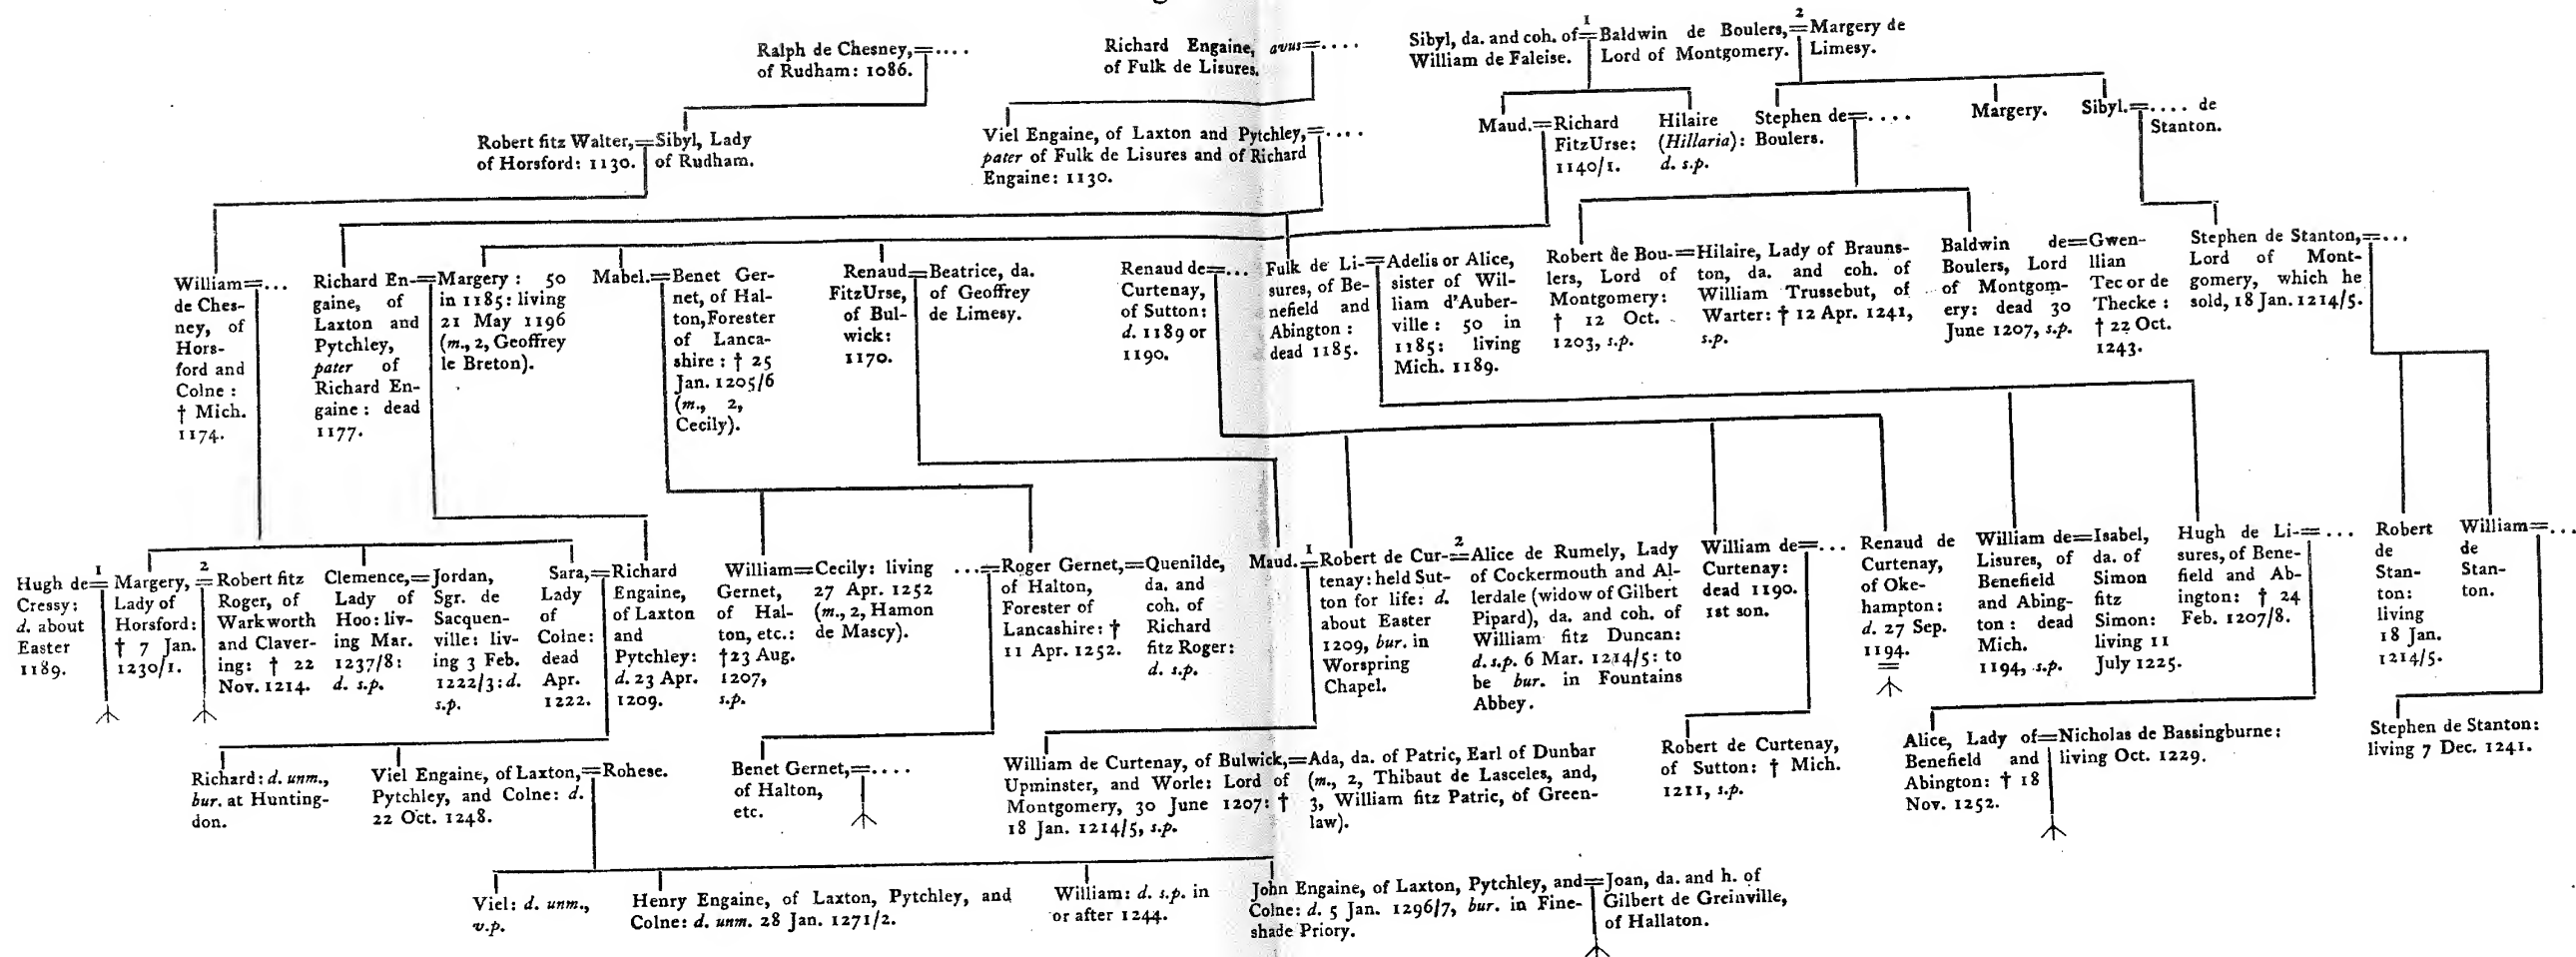 Ralph de Chesney,=....
of Rudham: 1086.
Richard Engaine, avus=....
of Fulk de Lisures.
Sibyl, da. and coh. of
William de Faleise.
1
=Baldwin de Boulers,
Lord of Montgomery.
2
=Margery de
Limesy.
Robert fitz Walter,
of Horsford: 1130.
=Sibyl, Lady
of Rudham.
Viel Engaine, of Laxton and Pytchley,=....
pater of Fulk de Lisures and of Richard
Engaine: 1130.
Maud.=Richard
FitzUrse:
1140/1.
Hilaire
(Hillaria):
d. s.p.
Stephen de=....
Boulers.
Margery.
Sibyl.=.... de
Stanton.
William=...
de Ches-
ney, of
Hors-
ford and
Colne:
† Mich.
1174.
Richard En-
gaine, of
Laxton and
Pytchley,
pater of
Richard En-
gaine: dead
1177.
=Margery: 50
in 1185: living
21 May 1196
(m., 2, Geoffrey
le Breton).
Mabel.=Benet Ger-
net, of Hal-
ton, Forester
of Lanca-
shire: † 25
Jan. 1205/6
(m., 2,
Cecily).
Renaud
FitzUrse,
of Bul-
wick:
1170.
=Beatrice, da.
of Geoffrey
de Limesy.
Renaud de=...
Curtenay,
of Sutton:
d. 1189 or
1190.
Fulk de Li-
sures, of Be-
nefield and
Abington:
dead 1185.
=Adelis or Alice,
sister of Wil-
liam d'Auber-
ville: 50 in
1185: living
Mich. 1189.
Robert de Bou-
lers, Lord of
Montgomery:
† 12 Oct.
1203, s.p.
=Hilaire, Lady of Brauns-
ton, da. and coh. of
William Trussebut, of
Warter: † 12 Apr. 1241,
s.p.
Baldwin de
Boulers, Lord
of Montgom-
ery: dead 30
June 1207, s.p.
=Gwen-
llian
Tec or de
Thecke:
† 22 Oct.
1243.
Stephen de Stanton,=...
Lord of Mont-
gomery, which he
sold, 18 Jan. 1214/5.
Hugh de
Cressy:
d. about
Easter
1189.
1
=Margery,
Lady of
Horsford:
† 7 Jan.
1230/1.
2
=Robert fitz
Roger, of
Warkworth
and Claver-
ing: † 22
Nov. 1214.
Clemence,
Lady of
Hoo: liv-
ing Mar.
1237/8:
d. s.p.
=Jordan,
Sgr. de
Sacquen-
ville: liv-
ing 3 Feb.
1222/3: d.
s.p.
Sara,
Lady
of
Colne:
dead
Apr.
1222.
=Richard
Engaine,
of Laxton
and
Pytchley:
d. 23 Apr.
1209.
William
Gernet,
of Hal-
ton, etc.:
†23 Aug.
1207,
s.p.
=Cecily: living
27 Apr. 1252
(m., 2, Hamon
de Mascy).
...=Roger Gernet,
of Halton,
Forester of
Lancashire: †
11 Apr. 1252.
=Quenilde,
da. and
coh. of
Richard
fitz Roger:
d. s.p.
Maud.
1
=Robert de Cur-
tenay: held Sut-
ton for life: d.
about Easter
1209, bur. in
Worspring
Chapel.
2
=Alice de Rumely, Lady
of Cockermouth and Al-
lerdale (widow of Gilbert
Pipard), da. and coh. of
William fitz Duncan:
d. s.p. 6 Mar. 1214/5: to
be bur. in Fountains
Abbey.
William de=...
Curtenay:
dead 1190.
1st son.
Renaud de
Curtenay,
of Oke-
hampton:
d. 27 Sep.
1194.
=
William de
Lisures, of
Benefield
and Abing-
ton: dead
Mich.
1194, s.p.
=Isabel,
da. of
Simon
fitz
Simon:
living 11
July 1225.
Hugh de Li-=...
sures, of Bene-
field and Ab-
ington: † 24
Feb. 1207/8.
Robert
de
Stan-
ton:
living
18 Jan.
1214/5.
William=...
de
Stan-
ton.
Richard: d. unm.,
bur. at Hunting-
don.
Viel Engaine, of Laxton,=Rohese.
Pytchley, and Colne: d.
22 Oct. 1248.
Benet Gernet,=....
of Halton,
etc.
William de Curtenay, of Bulwick,
Upminster, and Worle: Lord of
Montgomery, 30 June 1207: †
18 Jan. 1214/5, s.p.
=Ada, da. of Patric, Earl of Dunbar
(m., 2, Thibaut de Lasceles, and,
3, William fitz Patric, of Green-
law).
Robert de Curtenay,
of Sutton: † Mich.
1211, s.p.
Alice, Lady of
Benefield and
Abington: † 18
Nov. 1252.
=Nicholas de Bassingburne:
living Oct. 1229.
Stephen de Stanton:
living 7 Dec. 1241.
Viel: d. unm.,
v.p.
Henry Engaine, of Laxton, Pytchley, and
Colne: d. unm. 28 Jan. 1271/2.
William: d. s.p. in
or after 1244.
John Engaine, of Laxton, Pytchley, and
Colne: d. 5 Jan. 1296/7, bur. in Fine-
shade Priory.
=Joan, da. and h. of
Gilbert de Greinville,
of Hallaton.